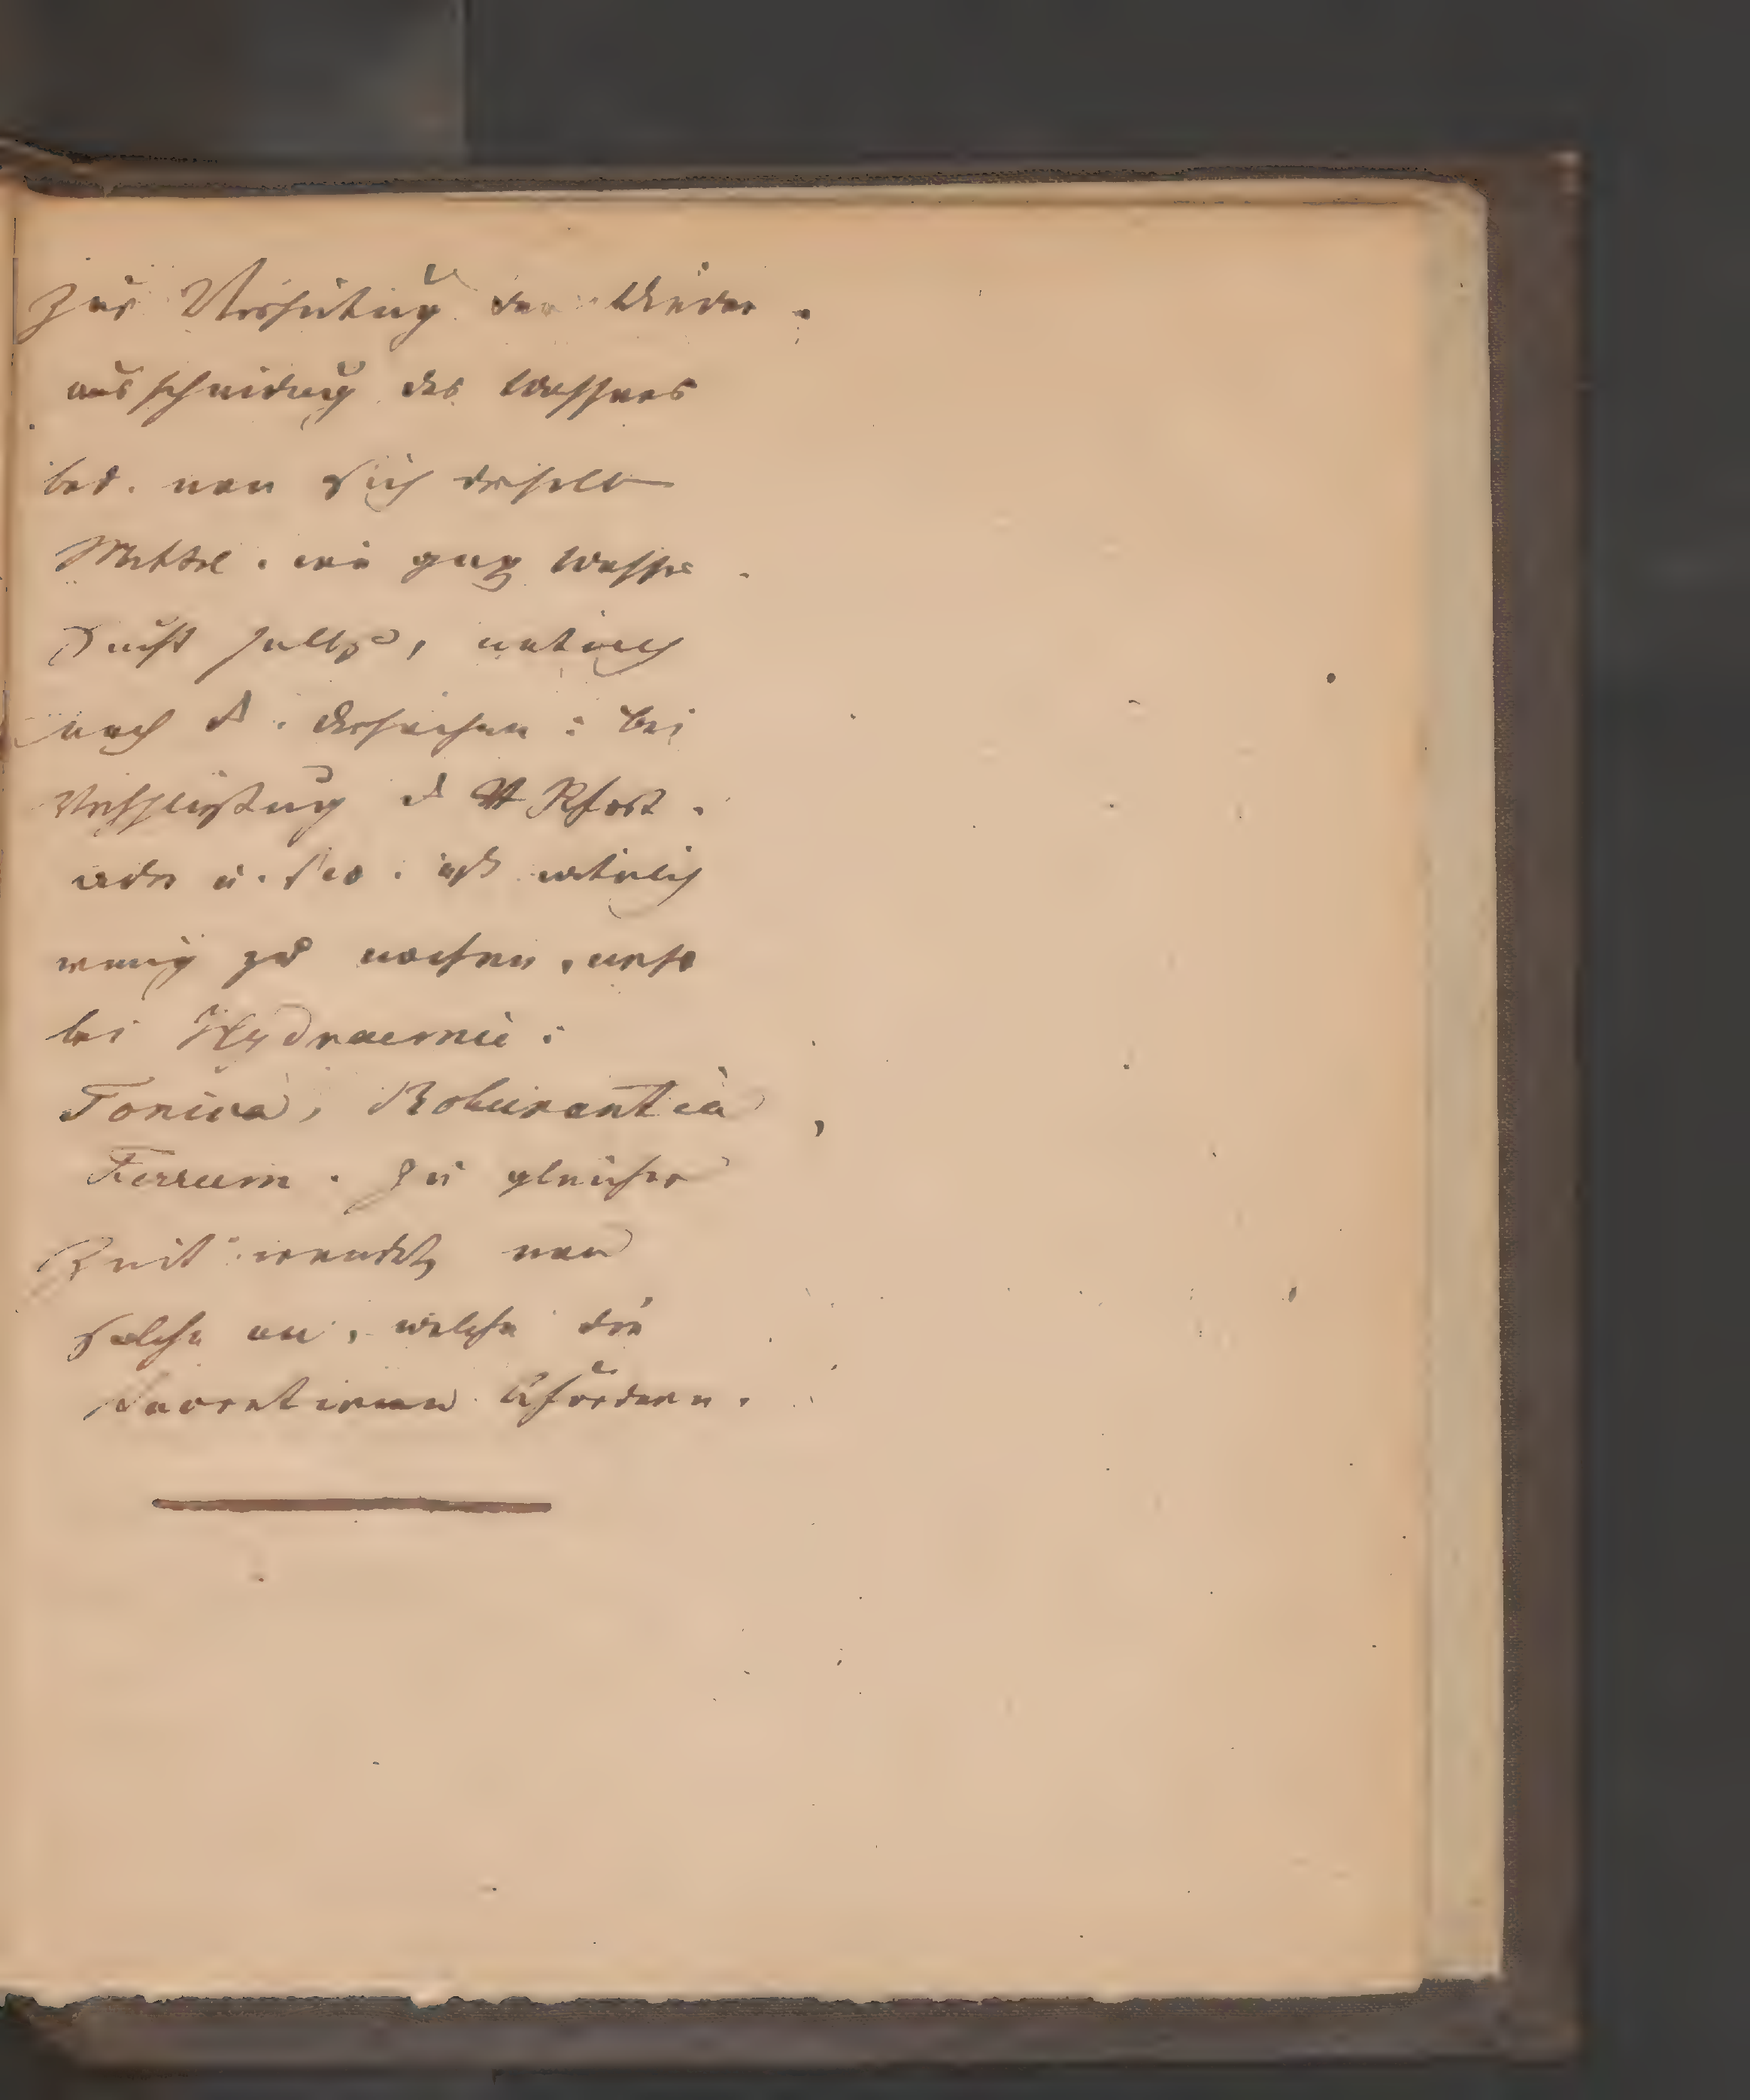 Zur Verhütung der Wieder-
ausscheidung des Wassers
bed. man sich derselb
Mittel. wie geg Wasser-
sucht selbst, natürlich
nach d. Ursachen: bei
Verschließung d Pfort-
ader u. s. w. ist natürlich
wenig zu machen, mehr
bei Hydraemie:
Tonica, Roburantia,
Ferrum. Zu gleicher
Zeit wendet man
solche an, welche die
Secretionen befördern.